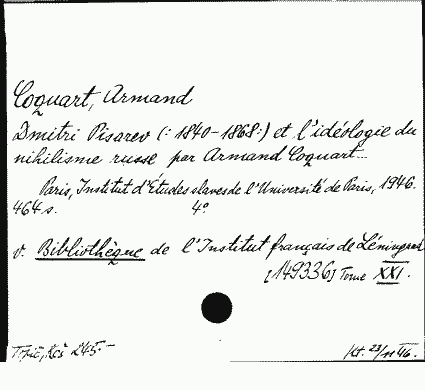 Coquart, Armand
Dmitri Pisarev (: 1840-1868:) et l'idéologie du
nihilisme russe par Armand Coquart...
Paris, Institut d'Études slaves de l'Université de Paris, 1946.
464 s. 4°
v. Bibliothèque de l'Institut français de Léningrad
[149336] Tome XXI.
Kčs 245.-
23/11 46.